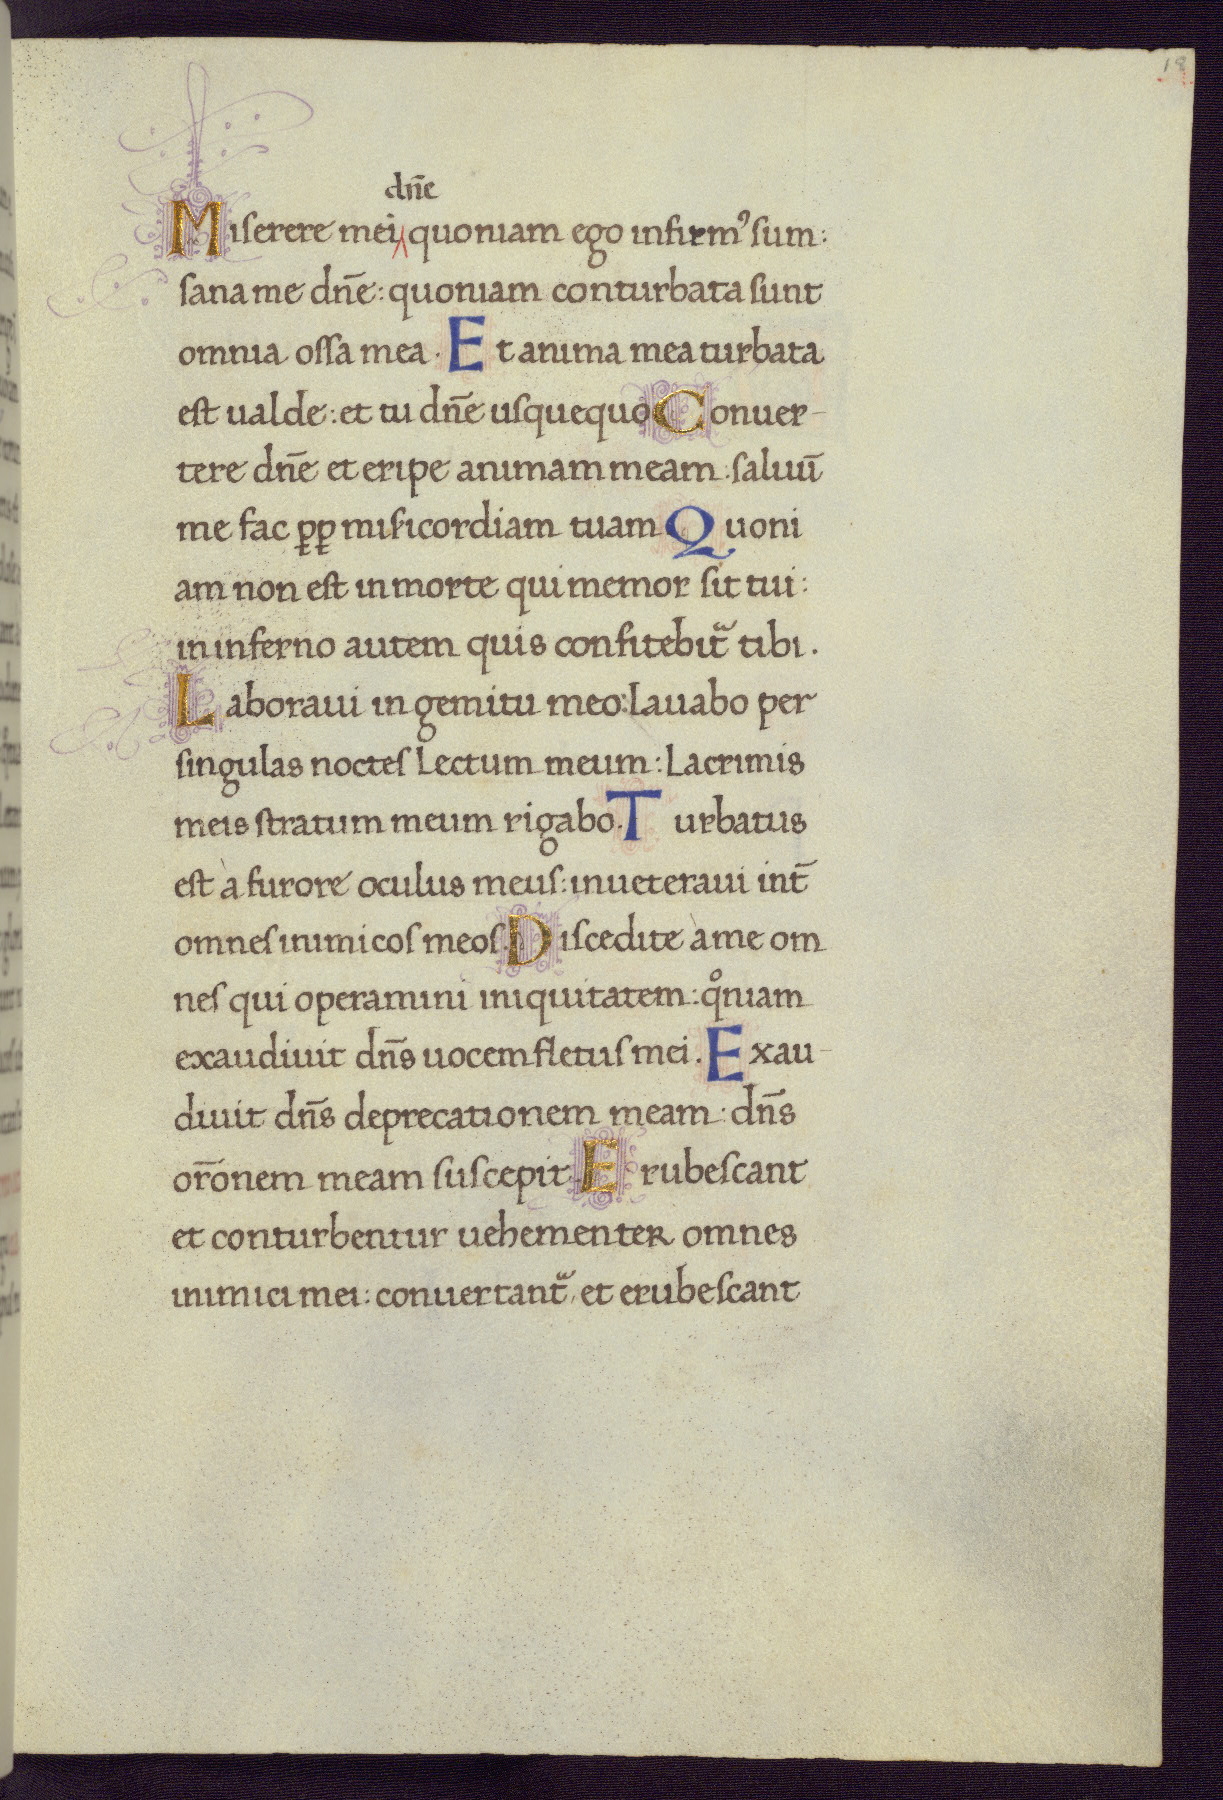 18
dn̄e
Miserere mei quoniam ego infirmꝰ sum:
sana me dn̄e: quoniam conturbata sunt
omnia ossa mea. Et anima mea turbata
est ualde: et tu dn̄e usquequo Conuer-
tere dn̄e et eripe animam meam: saluū
me fac ꝓꝓ misicordiam tuam Quoni
am non est in morte qui memor sit tui:
in inferno autem quis confitebit᷑ tibi.
Laboraui in gemitu meo: lauabo per
singulas noctes lectum meum: lacrimis
meis stratum meum rigabo. Turbatus
est à furore oculus meus: inueteraui int̄
omnes inimicos meos. Discedite à me om
nes qui operamini iniquitatem: qͦniam
exaudiuit dn̄s uocem fletus mei. Exau-
diuit dn̄s deprecationem meam: dn̄s
or̄onem meam suscepit. Erubescant
et conturbentur uehementer omnes
inimici mei: conuertant᷑, et erubescant